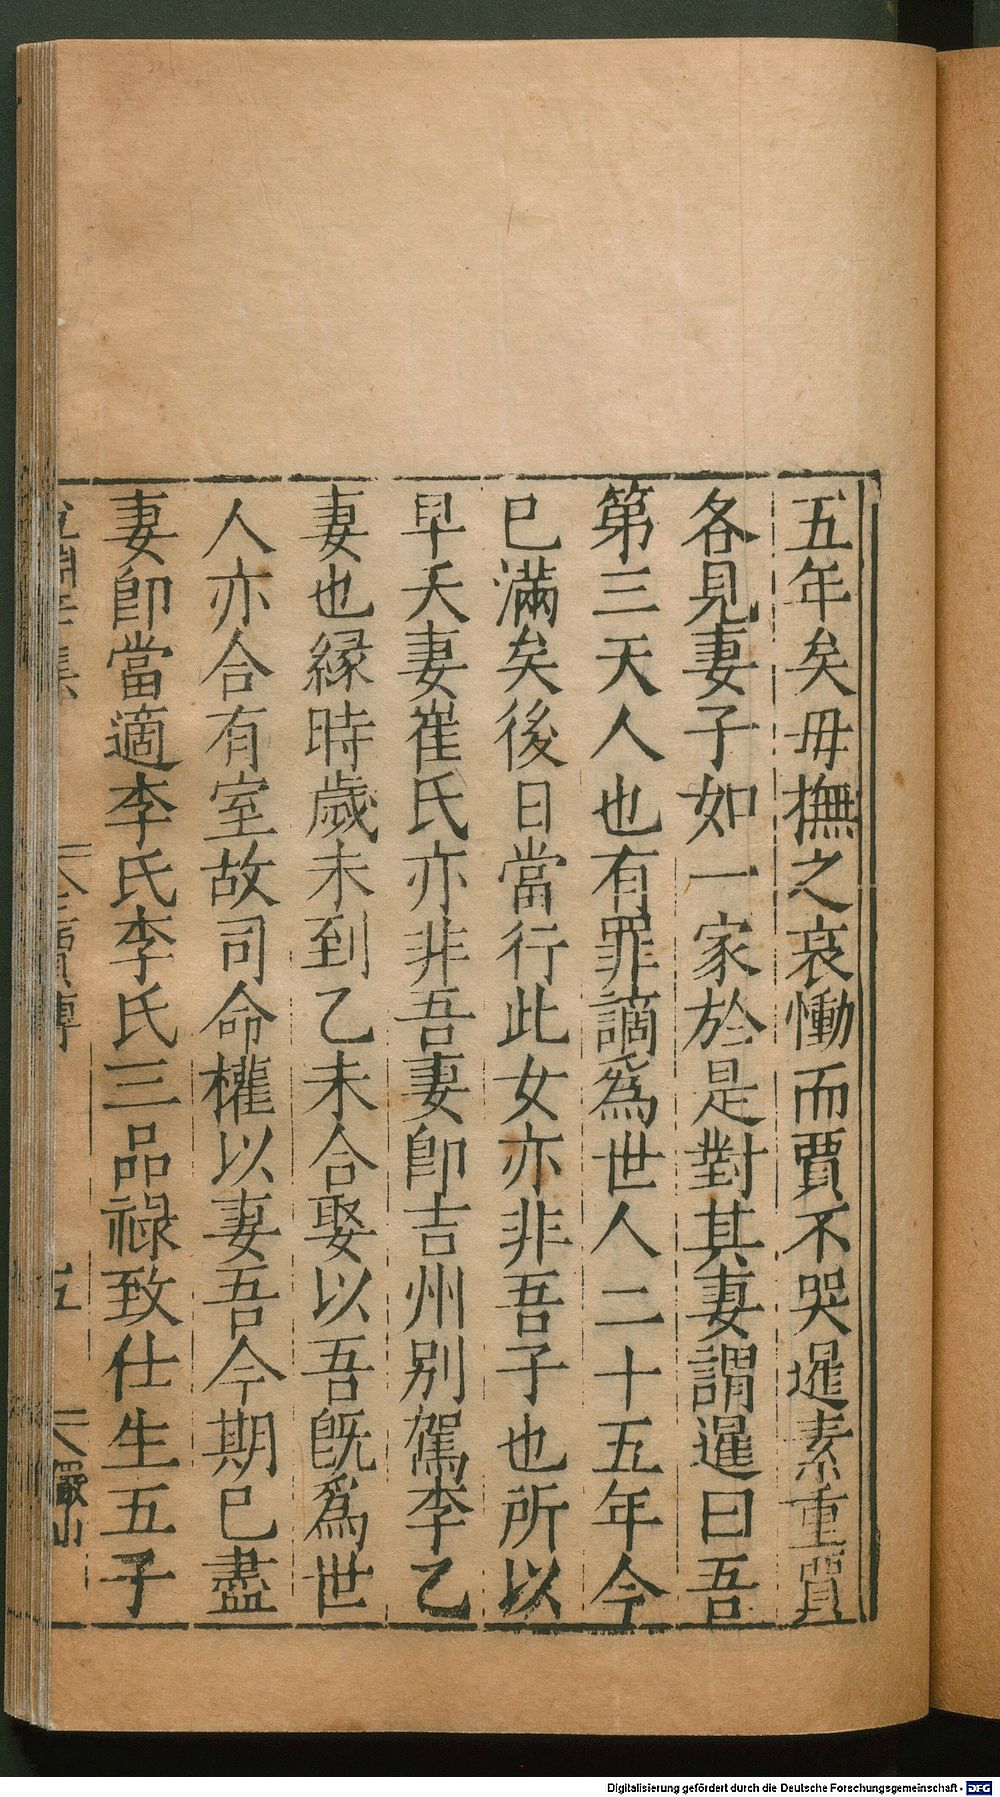 五年矣毋撫之哀慟而賈不哭暹素重賈
各見妻子如一家於是對其妻謂暹曰吾
第三天人也有罪謫爲世人二十五年今
巳滿矣後日當行此女亦非吾子也所以
早夭妻崔氏亦非吾妻卽吉州別駕李乙
妻也緣時歲未到乙未合娶以吾旣爲世
人亦合有室故司命權以妻吾今期巳盡
妻卽當適李氏李氏三品祿致仕生五子
五
Digitalisierung gefördert durch die Deutsche Forschungsgemeinschaft - DFG